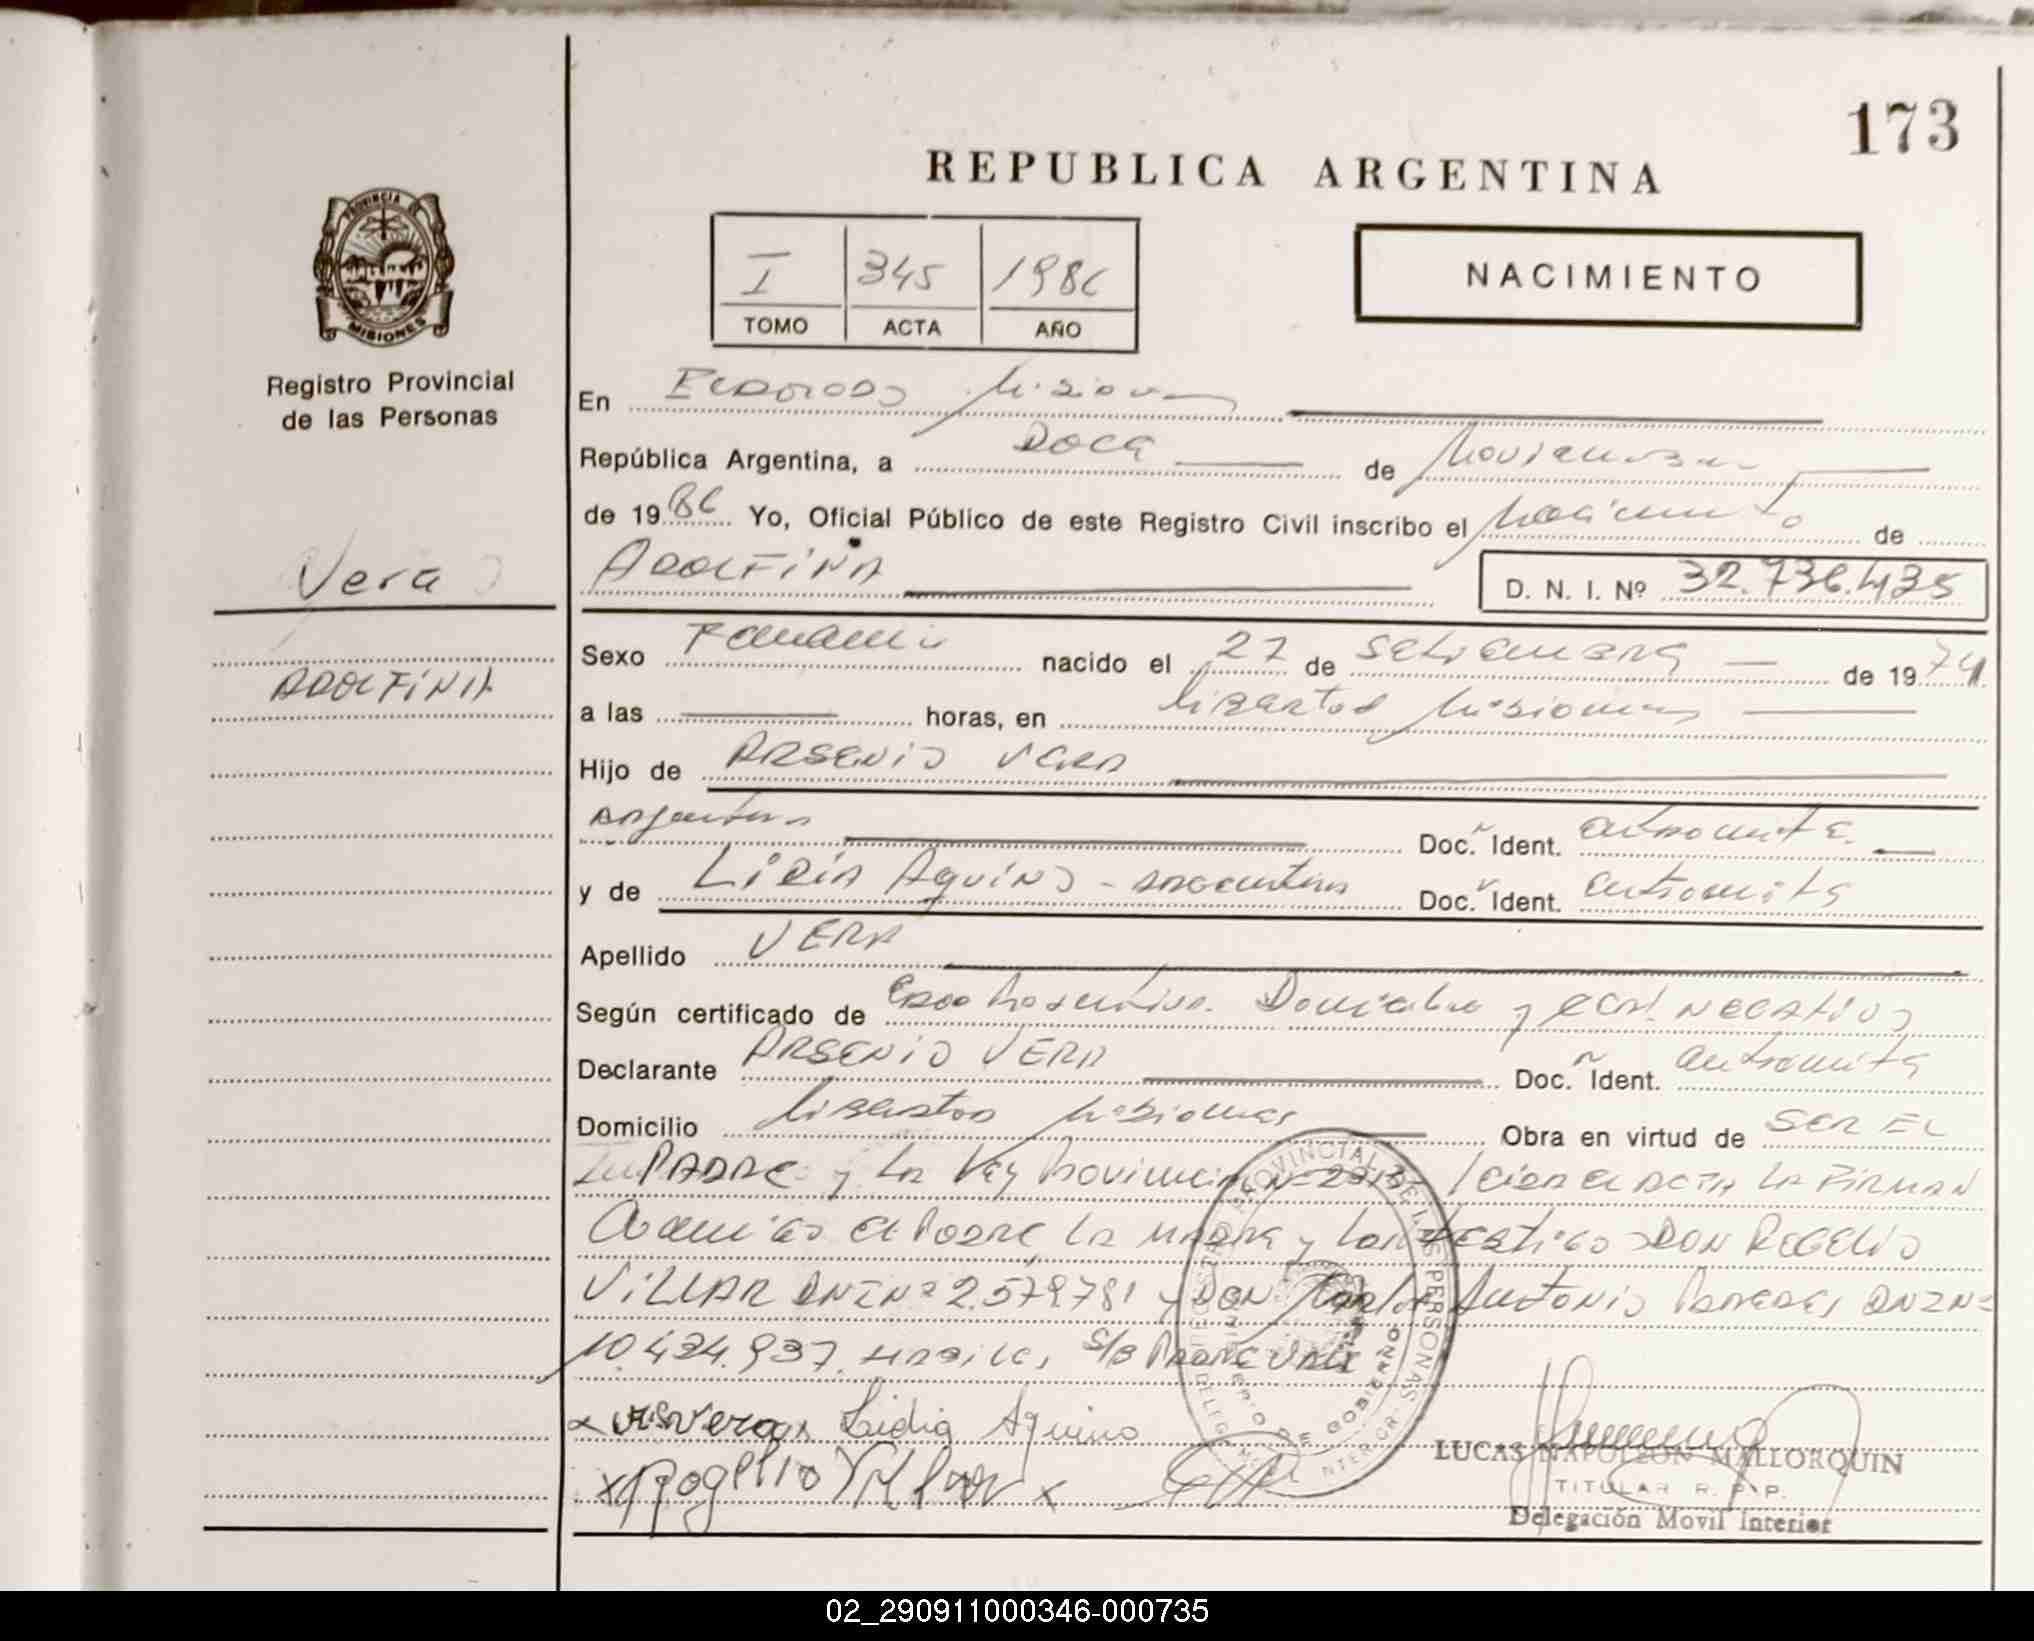 173
REPUBLICA ARGENTINA
PROVINCIA DE
MISIONES
Registro Provincial
de las Personas
I 345 1986
TOMO ACTA AÑO
NACIMIENTO
En Eldorado Misiones
República Argentina, a Doce de Noviembre
de 1986 Yo, Oficial Público de este Registro Civil inscribo el Nacimiento de
ADOLFINA
D. N. I. Nº 32.736.435
Vera
ADOLFINA
Sexo Femenino nacido el 27 de Setiembre de 1974
a las horas, en Libertad Misiones
Hijo de ARSENIO VERA
Argentino Doc. Ident.
y de LIDIA AQUINO - Argentina Doc. Ident.
Apellido VERA
Según certificado de Domicilio y Cert. NEGATIVO
Declarante ARSENIO VERA Doc. Ident.
Domicilio Libertad Misiones Obra en virtud de SER EL
PADRE y La Ley Provincial Nº Leida el ACTA LA FIRMAN
el Padre, La Madre y Los testigos DON ROGELIO
VILLAR DNI Nº 2.579.781 y DON Carlos Antonio Paredes DNI Nº
10.434.937. S/B PADRE VALE
Vera x Lidia Aquino
x Rogelio Villar x
REGISTRO PROVINCIAL DE LAS PERSONAS
MINISTERIO DE GOBIERNO
LUCAS NAPOLEON MALLORQUIN
TITULAR R. P. P.
Delegación Movil Interior
02_290911000346-000735